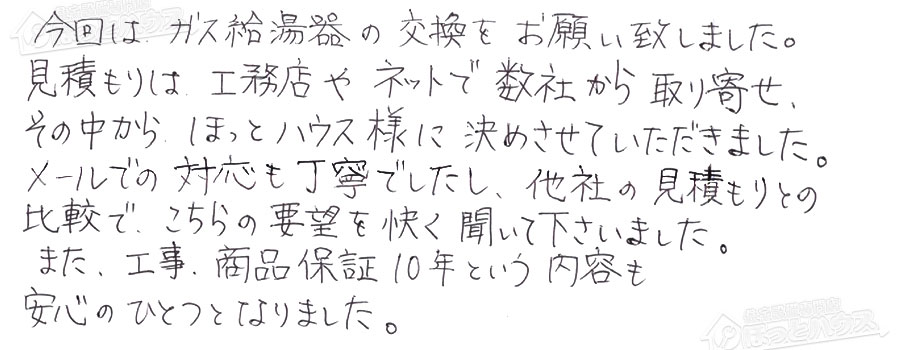 今回は、ガス給湯器の交換をお願い致しました。
見積もりは、工務店やネットで数社から取り寄せ、
その中から、ほっとハウス様に決めさせていただきました。
メールでの対応も丁寧でしたし、他社の見積もりとの
比較で、こちらの要望を快く聞いて下さいました。
また、工事、商品保証10年という内容も
安心のひとつとなりました。
ほっとハウス